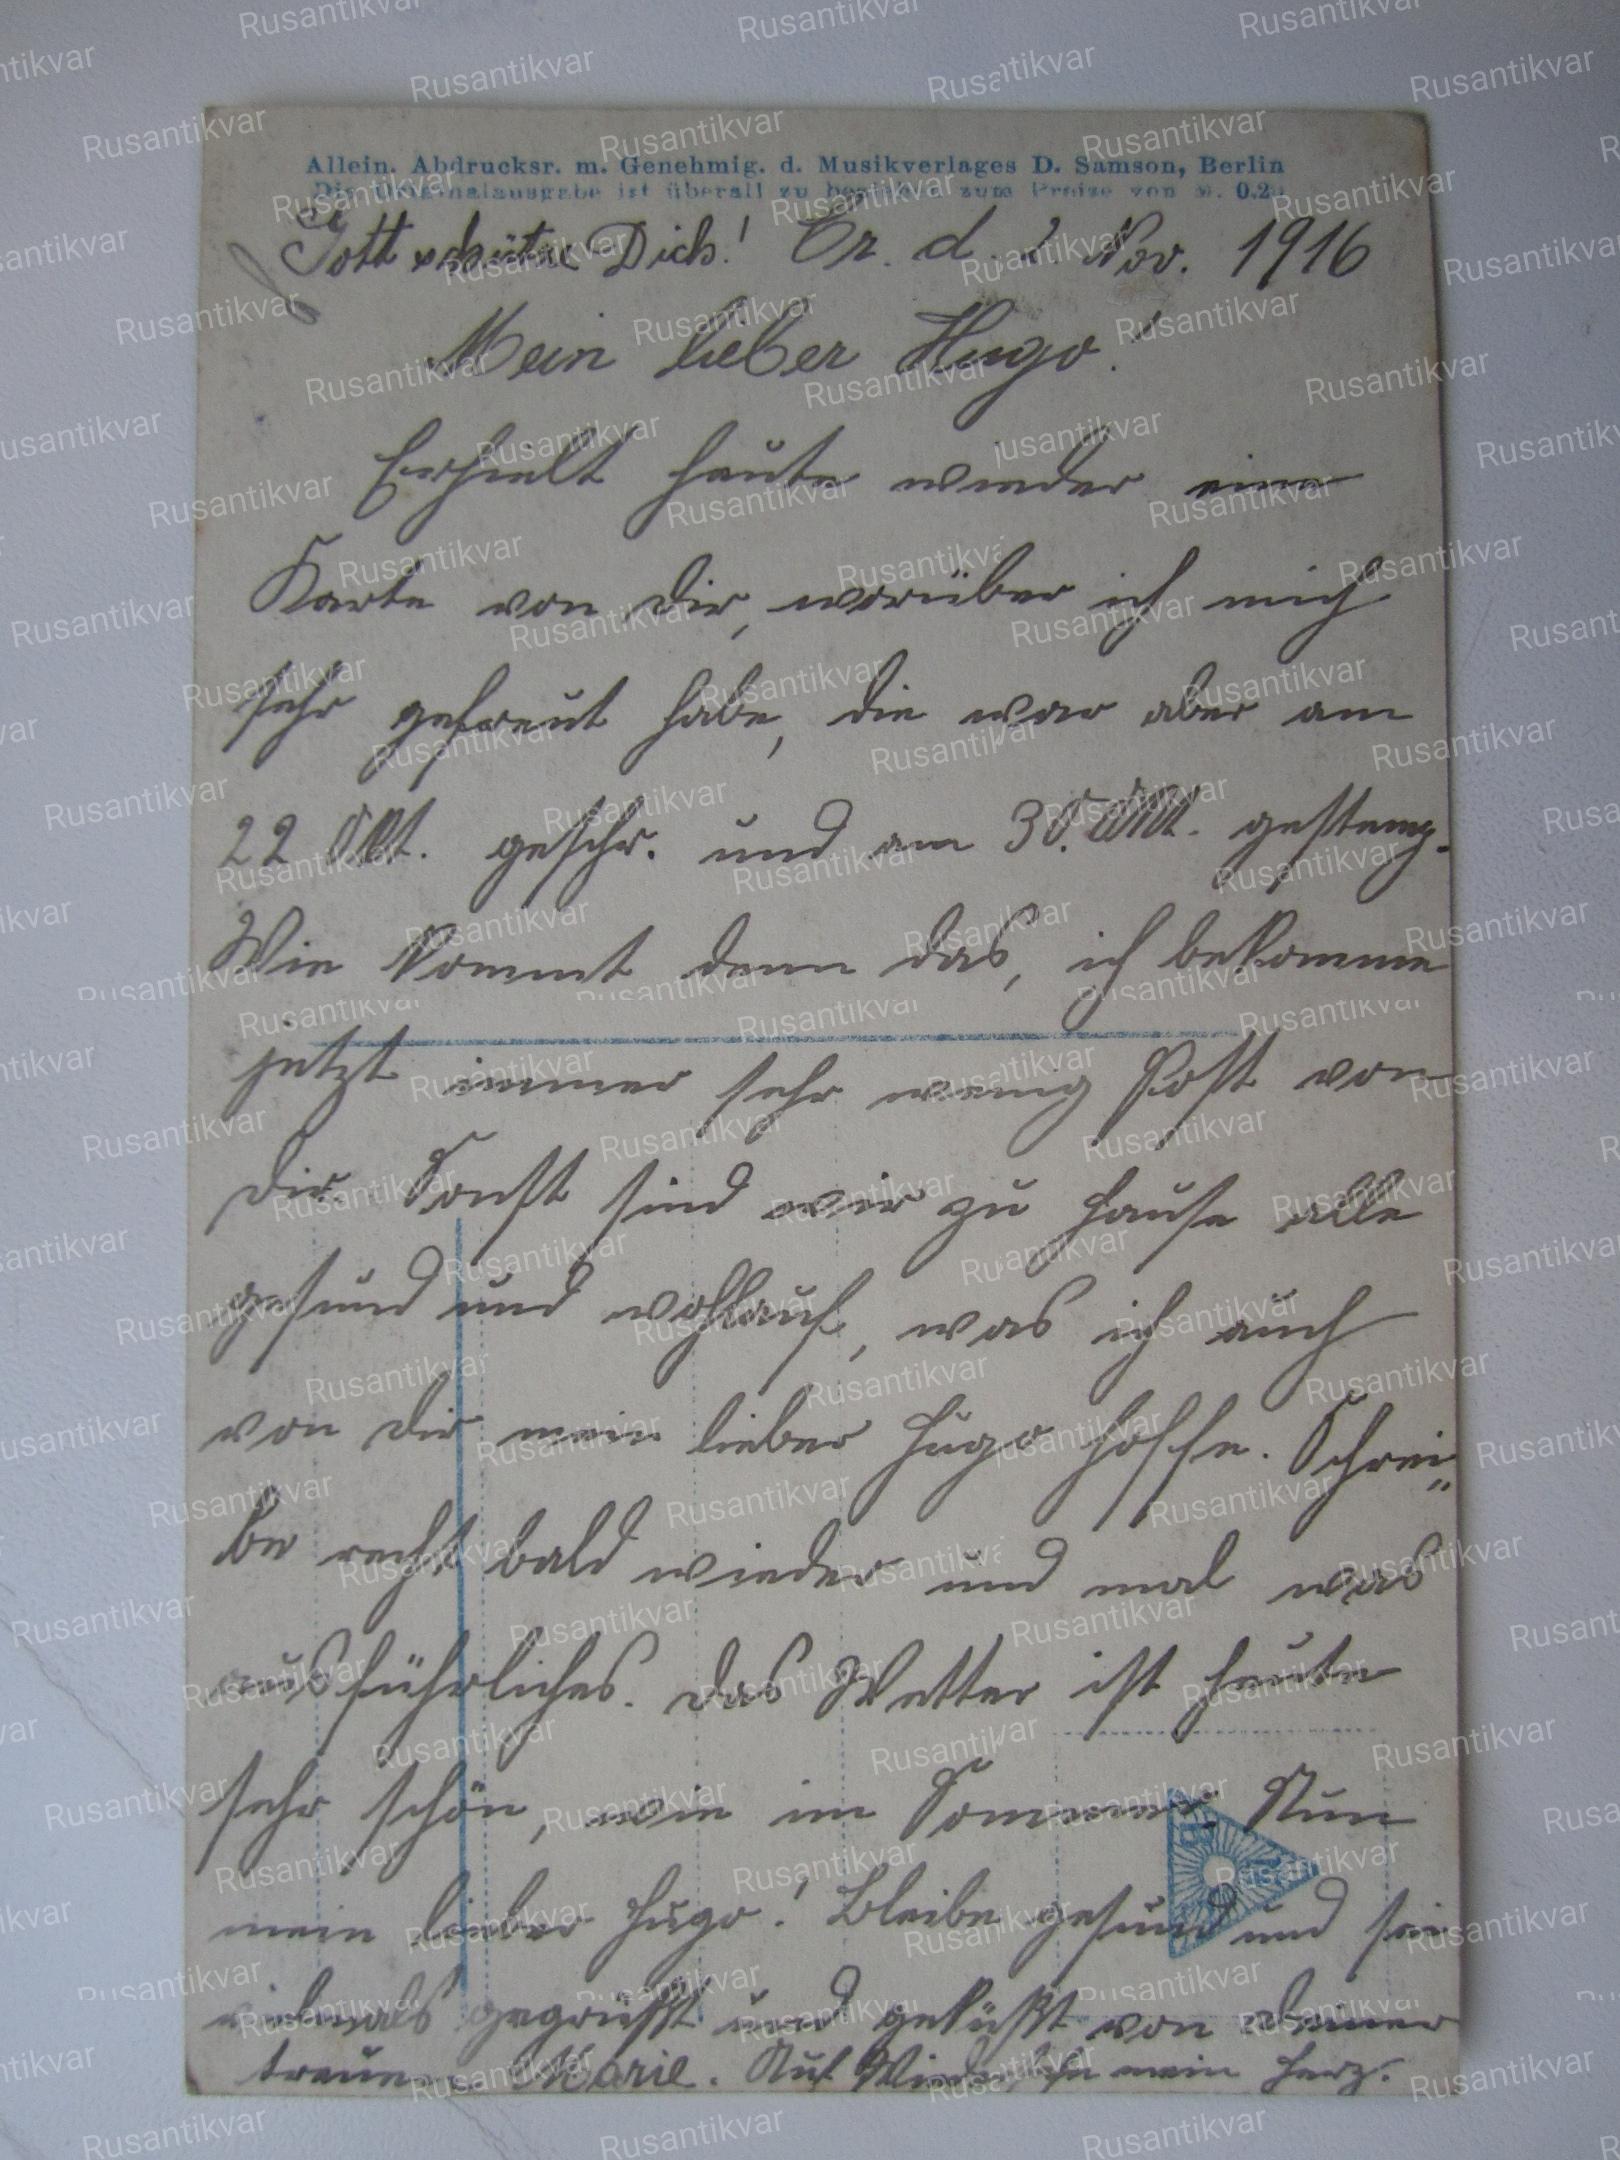 Allein. Abdrucksr. m. Genehmig. d. Musikverlages D. Samson, Berlin
Die Originalausgabe ist überall zu beziehen zum Preise von M. 0.20
Gott schütze Dich! Br. d. 2. Nov. 1916
Mein lieber Hugo!
Erhielt heute wieder eine
Karte von dir, worüber ich mich
sehr gefreut habe, die war aber am
22 Okt. geschr. und am 30. Okt. gestemp.
Wie kommt denn das, ich bekomme
jetzt immer sehr wenig Post von
dir. Sonst sind wir zu Hause alle
gesund und wohlauf, was ich auch
von dir mein lieber Hugo hoffe. Schrei-
be recht bald wieder und mal was
ausführliches. Das Wetter ist heute
sehr schön, wie im Sommer. Nun
mein lieber Hugo! Bleibe gesund und sei
vielmals gegrüßt und geküßt von deiner
treuen Marie. Auf Wiedersehn mein Herz.
Rusantikvar